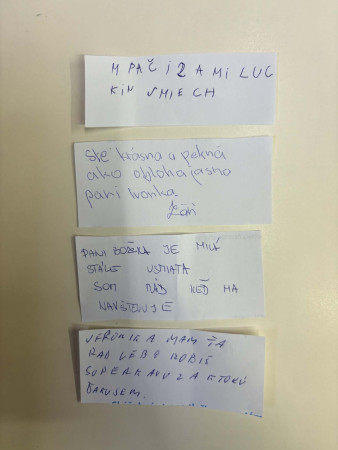 M PAČI 2 A MI LUC
KIN SMIECH
Ste krásna a pekná
ako obloha jasná
pani Ivonka.
PANI BOŽENA JE MILÁ
STÁLE USMIATA
SOM RÁD KEĎ MA
NAVŠTEVUJE
VERONIKA MAM ŤA
RAD LEBO ROBIŠ
SUPER KAVU ZA KTORÚ
ĎAKUJEM.